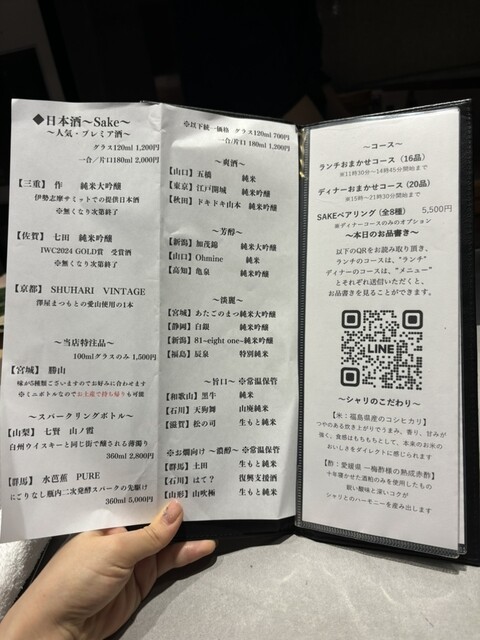 ◆日本酒～Sake～
～人気・プレミア酒～
グラス120ml 1,200円
一合/片口180ml 2,000円
【三重】 作 純米大吟醸
伊勢志摩サミットでの提供日本酒
※無くなり次第終了
【佐賀】 七田 純米吟醸
IWC2024 GOLD賞 受賞酒
※無くなり次第終了
【京都】 SHUHARI VINTAGE
澤屋まつもとの愛山使用の1本
～当店特注品～
100mlグラスのみ 1,500円
【宮城】 勝山
味が5種類ございますのでお好みに合わせます
※ミニボトルなのでお土産で持ち帰りも可能
～スパークリングボトル～
【山梨】 七賢 山ノ霞
白州ウイスキーと同じ街で醸される薄濁り
360ml 2,800円
【群馬】 水芭蕉 PURE
にごりなし瓶内二次発酵スパークの先駆け
360ml 5,000円
※以下統一価格 グラス120ml 700円
一合/片口 180ml 1,200円
～爽酒～
【山口】五橋 純米
【東京】江戸開城 純米吟醸
【秋田】ドキドキ山本 純米吟醸
～芳醇～
【新潟】加茂錦 純米大吟醸
【山口】Ohmine 純米
【高知】亀泉 純米吟醸
～淡麗～
【宮城】あたごのまつ純米大吟醸
【静岡】白銀 純米吟醸
【新潟】81~eight one~純米吟醸
【福島】辰泉 特別純米
～旨口～ ※常温保管
【和歌山】黒牛 純米
【石川】天狗舞 山廃純米
【滋賀】松の司 生もと純米
※お燗向け ～濃醇～ ※常温保管
【群馬】土田 生もと純米
【石川】はて？ 復興支援酒
【山形】山吹極 生もと純米
～コース～
ランチおまかせコース（16品）
※11時30分～14時45分開始まで
ディナーおまかせコース(20品)
※15時～21時30分開始まで
SAKEペアリング（全8種） 5,500円
※ディナーコースのみのオプション
～本日のお品書き～
以下のQRをお読み取り頂き、
ランチのコースは、"ランチ"
ディナーのコースは、"メニュー"
とそれぞれ送信いただくと、
お品書きを見ることができます。
LINE
～シャリのこだわり～
【米：福島県産のコシヒカリ】
つやのある炊き上がりでうまみ、香り、甘みが
強く、食感はもちもちとして、本来のお米の
おいしさをダイレクトに感じられます
【酢：愛媛県 一梅酢様の熟成赤酢】
十年寝かせた酒粕のみを使用したもの
鋭い酸味と深いコクが
シャリとのハーモニーを産み出します